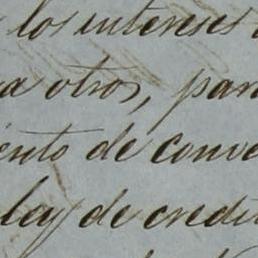 los intereses
a otros, par
ento de conve
ley de credit